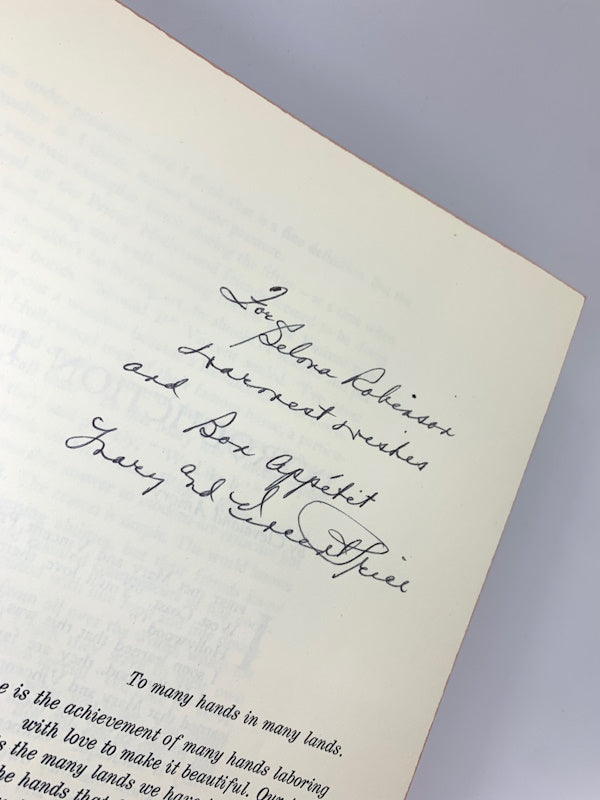 For Delova Robinson
Warmest wishes
and Bon Appétit
Mary and Vincent Price
To many hands in many lands.
e is the achievement of many hands laboring
with love to make it beautiful. Our
s the many lands we have
he hands that